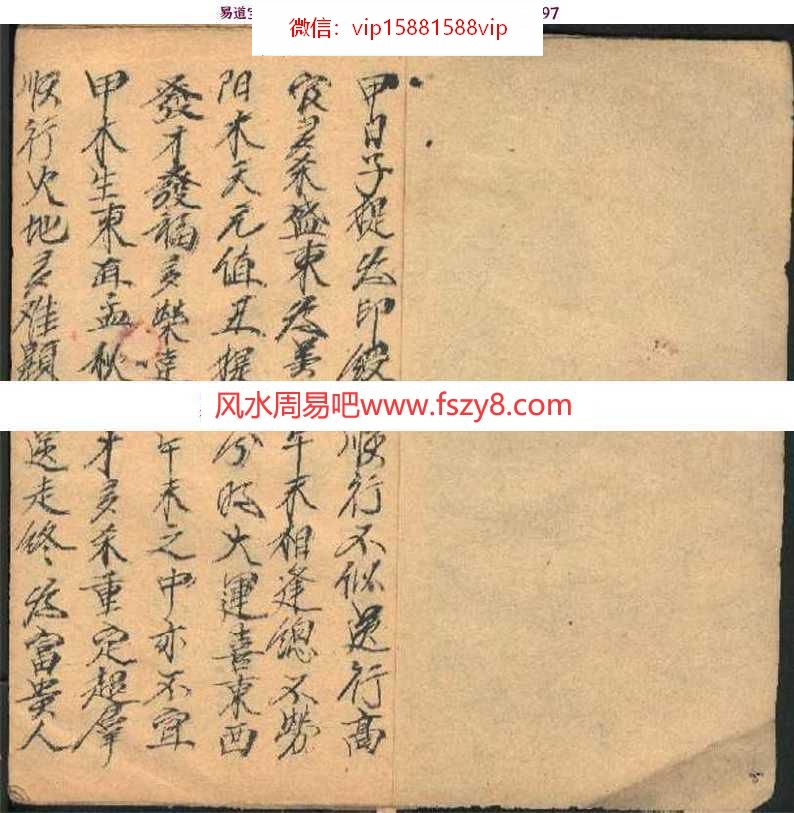 易道
97
微信：vip15881588vip
甲日子提為印綬
官杀盛東為美
阳木天元值丑提
發才發福多榮達
甲木生東孟秋
順行火地多难顯
风水周易吧www.fszy8.com
順行不似逆行高
午未相逢總不勞
分时火運喜東西
午未之中亦不宜
才多杀重定超羣
逆走終為富貴人